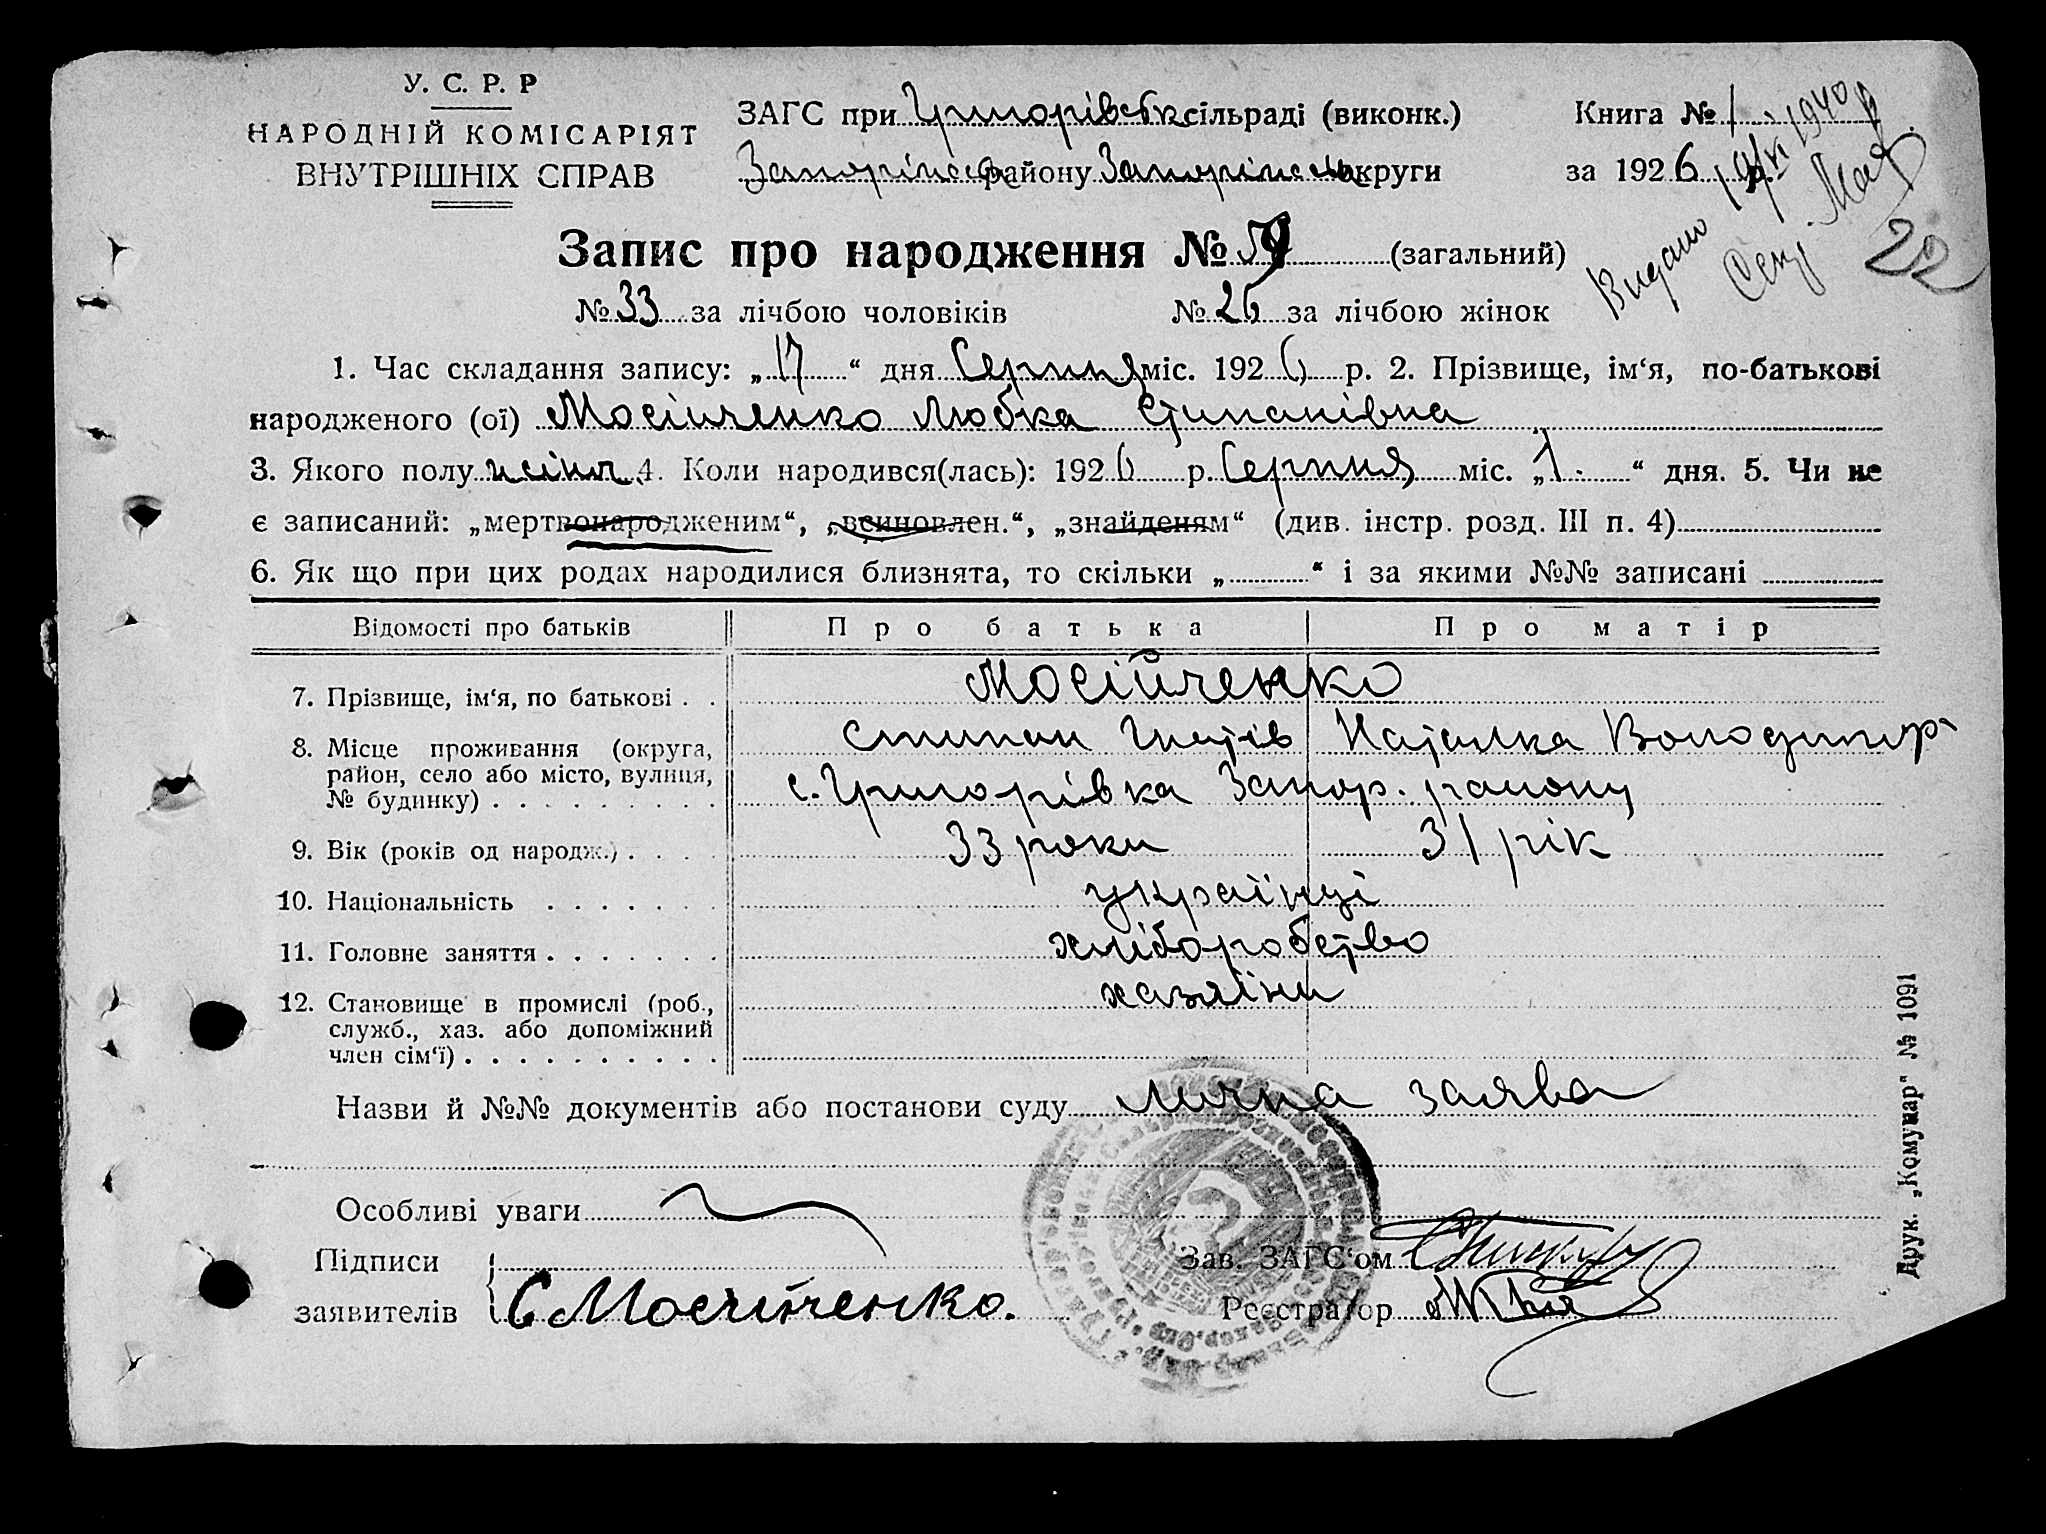 У. С. Р. Р
НАРОДНІЙ КОМІСАРІЯТ
ВНУТРІШНІХ СПРАВ
ЗАГС при Григорівськ сільраді (виконк.)
Запорізьк району Запорізьк округи
Книга № 1
за 1926 р.
Видано 19/XI 1940 р
22
Запис про народження № 59 (загальний)
№ 33 за лічбою чоловіків № 26 за лічбою жінок
1. Час складання запису: „17“ дня Серпня міс. 1926 р. 2. Прізвище, ім‘я, по-батькові
народженого (ої) Мосійченко Любка Стипанівна
3. Якого полу жіноч 4. Коли народився(лась): 1926 р. Серпня міс. „1.“ дня. 5. Чи не
є записаний: „мертвонародженим“, „всиновлен.“, „знайденям“ (див. інстр. розд. III п. 4)
6. Як що при цих родах народилися близнята, то скільки „ “ і за якими №№ записані
Відомості про батьків Про батька Про матір
7. Прізвище, ім‘я, по батькові . . Мосійченко
Стипан Гнатів Наталка Володимир
8. Місце проживання (округа,
район, село або місто, вулиця,
№ будинку) с. Григорівка Запор. району
9. Вік (років од народж.) 33 роки 31 рік
10. Національність українці
11. Головне заняття хліборобство
12. Становище в промислі (роб., хазяїни
служб., хаз. або допоміжний
член сім‘ї)
Назви й №№ документів або постанови суду лична заява
Особливі уваги
Підписи
заявителів С Мосійченко.
Зав. ЗАГС‘ом
Реєстратор
Друк. „Комунар“ № 1091